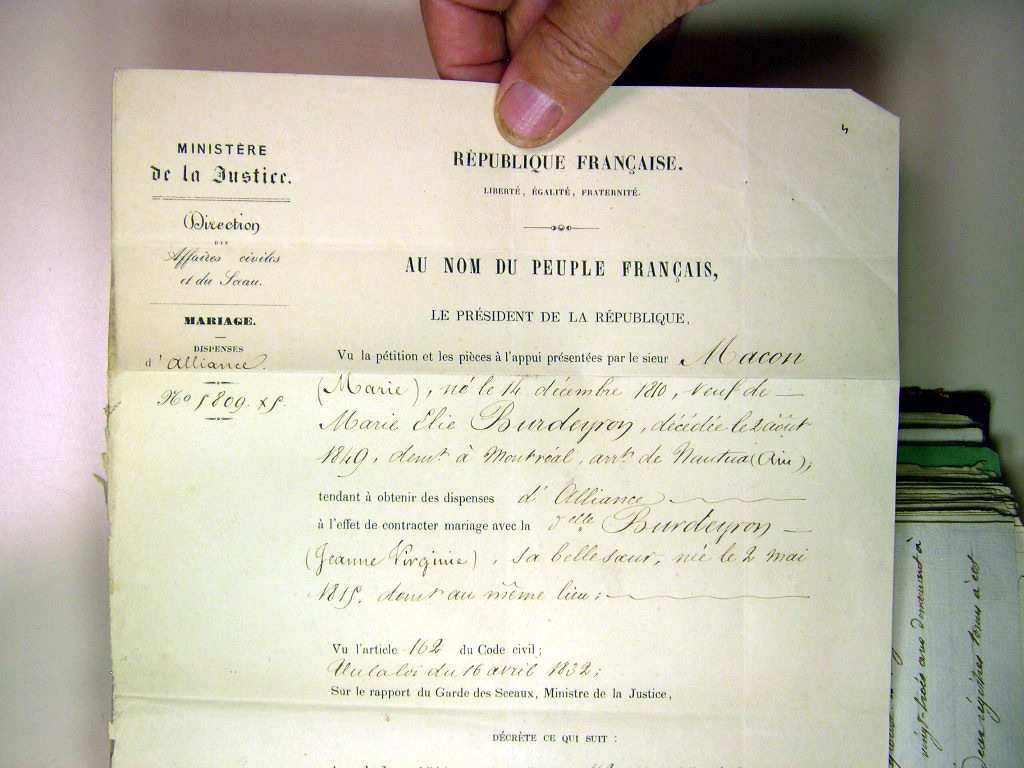 MINISTÈRE
de la Justice.
Direction
DES
Affaires civiles
et du Sceau.
MARIAGE.
DISPENSES
d'Alliance.
No 5809. X5.
RÉPUBLIQUE FRANÇAISE.
LIBERTÉ, ÉGALITÉ, FRATERNITÉ.
AU NOM DU PEUPLE FRANÇAIS,
LE PRÉSIDENT DE LA RÉPUBLIQUE,
Vu la pétition et les pièces à l'appui présentées par le sieur Macon
(Marie), né le 14 décembre 1810, veuf de
Marie Élie Burdeyron, décédée le 2 août
1849, demt à Montréal, arrt de Nantua (Ain);
tendant à obtenir des dispenses d'Alliance
à l'effet de contracter mariage avec la Delle Burdeyron
(Jeanne Virginie), sa belle sœur, né le 2 mai
1815. demt au même lieu;
Vu l'article 162 du Code civil;
Vu la loi du 16 avril 1832;
Sur le rapport du Garde des Sceaux, Ministre de la Justice,
DÉCRÈTE CE QUI SUIT :
vingt-trois ans demeurant à